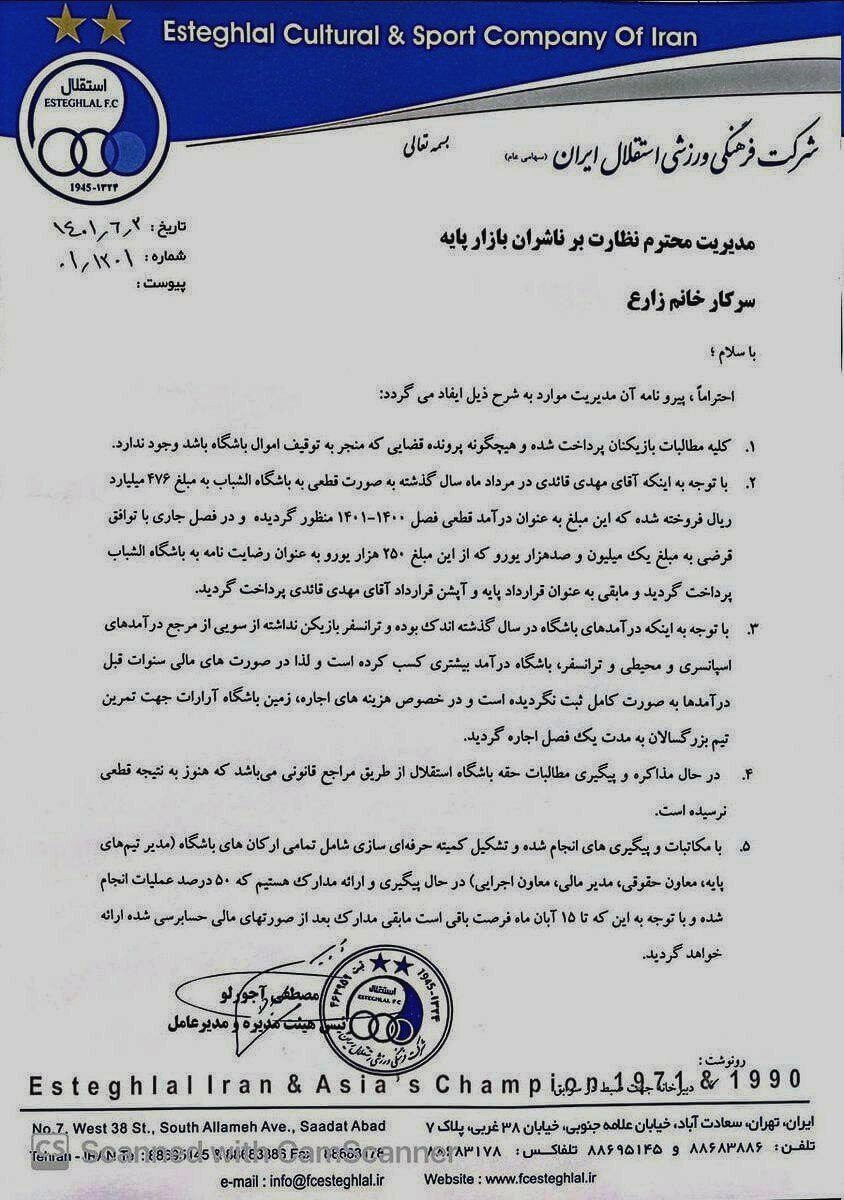 Esteghlal Cultural & Sport Company Of Iran
استقلال
ESTEGHLAL F.C
1945-۱۳۲۴
شرکت فرهنگی ورزشی استقلال ایران (سهامی عام)
بسمه تعالی
تاریخ: ۱۴۰۱٫۶٫۲
شماره: ۰۱٫۱۲۰۱
پیوست:
مدیریت محترم نظارت بر ناشران بازار پایه
سرکار خانم زارع
با سلام ؛
احتراماً ، پیرو نامه آن مدیریت موارد به شرح ذیل ایفاد می گردد:
۱. کلیه مطالبات بازیکنان پرداخت شده و هیچگونه پرونده قضایی که منجر به توقیف اموال باشگاه باشد وجود ندارد.
۲. با توجه به اینکه آقای مهدی قائدی در مرداد ماه سال گذشته به صورت قطعی به باشگاه الشباب به مبلغ ۴۷۶ میلیارد
ریال فروخته شده که این مبلغ به عنوان درآمد قطعی فصل ۱۴۰۰-۱۴۰۱ منظور گردیده و در فصل جاری با توافق
قرضی به مبلغ یک میلیون و صدهزار یورو که از این مبلغ ۲۵۰ هزار یورو به عنوان رضایت نامه به باشگاه الشباب
پرداخت گردید و مابقی به عنوان قرارداد پایه و آپشن قرارداد آقای مهدی قائدی پرداخت گردید.
۳. با توجه به اینکه درآمدهای باشگاه در سال گذشته اندک بوده و ترانسفر بازیکن نداشته از سویی از مرجع درآمدهای
اسپانسری و محیطی و ترانسفر، باشگاه درآمد بیشتری کسب کرده است و لذا در صورت های مالی سنوات قبل
درآمدها به صورت کامل ثبت نگردیده است و در خصوص هزینه های اجاره، زمین باشگاه آرارات جهت تمرین
تیم بزرگسالان به مدت یک فصل اجاره گردید.
۴. در حال مذاکره و پیگیری مطالبات حقه باشگاه استقلال از طریق مراجع قانونی می‌باشد که هنوز به نتیجه قطعی
نرسیده است.
۵. با مکاتبات و پیگیری های انجام شده و تشکیل کمیته حرفه‌ای سازی شامل تمامی ارکان های باشگاه (مدیر تیم‌های
پایه، معاون حقوقی، مدیر مالی، معاون اجرایی) در حال پیگیری و ارائه مدارک هستیم که ۵۰ درصد عملیات انجام
شده و با توجه به این که تا ۱۵ آبان ماه فرصت باقی است مابقی مدارک بعد از صورتهای مالی حسابرسی شده ارائه
خواهد گردید.
مصطفی آجورلو
رئیس هیئت مدیره و مدیرعامل
استقلال
ESTEGHLAL F.C
1945-۱۳۲۴
شرکت فرهنگی ورزشی استقلال ایران
رونوشت:
دبیرخانه جهت ضبط در سوابق
Esteghlal Iran & Asia's Champion 1971 & 1990
ایران، تهران، سعادت آباد، خیابان علامه جنوبی، خیابان ۳۸ غربی، پلاک ۷
تلفن: ۸۸۶۸۳۸۸۶ و ۸۸۶۹۵۱۴۵ تلفاکس: ۸۸۶۸۳۱۷۸
No.7, West 38 St., South Allameh Ave., Saadat Abad
Tehran - IRAN Tel: 88695145 & 88683886 Fax: 88683178
e-mail : info@fcesteghlal.ir
Website : www.fcesteghlal.ir
CS Scanned with CamScanner